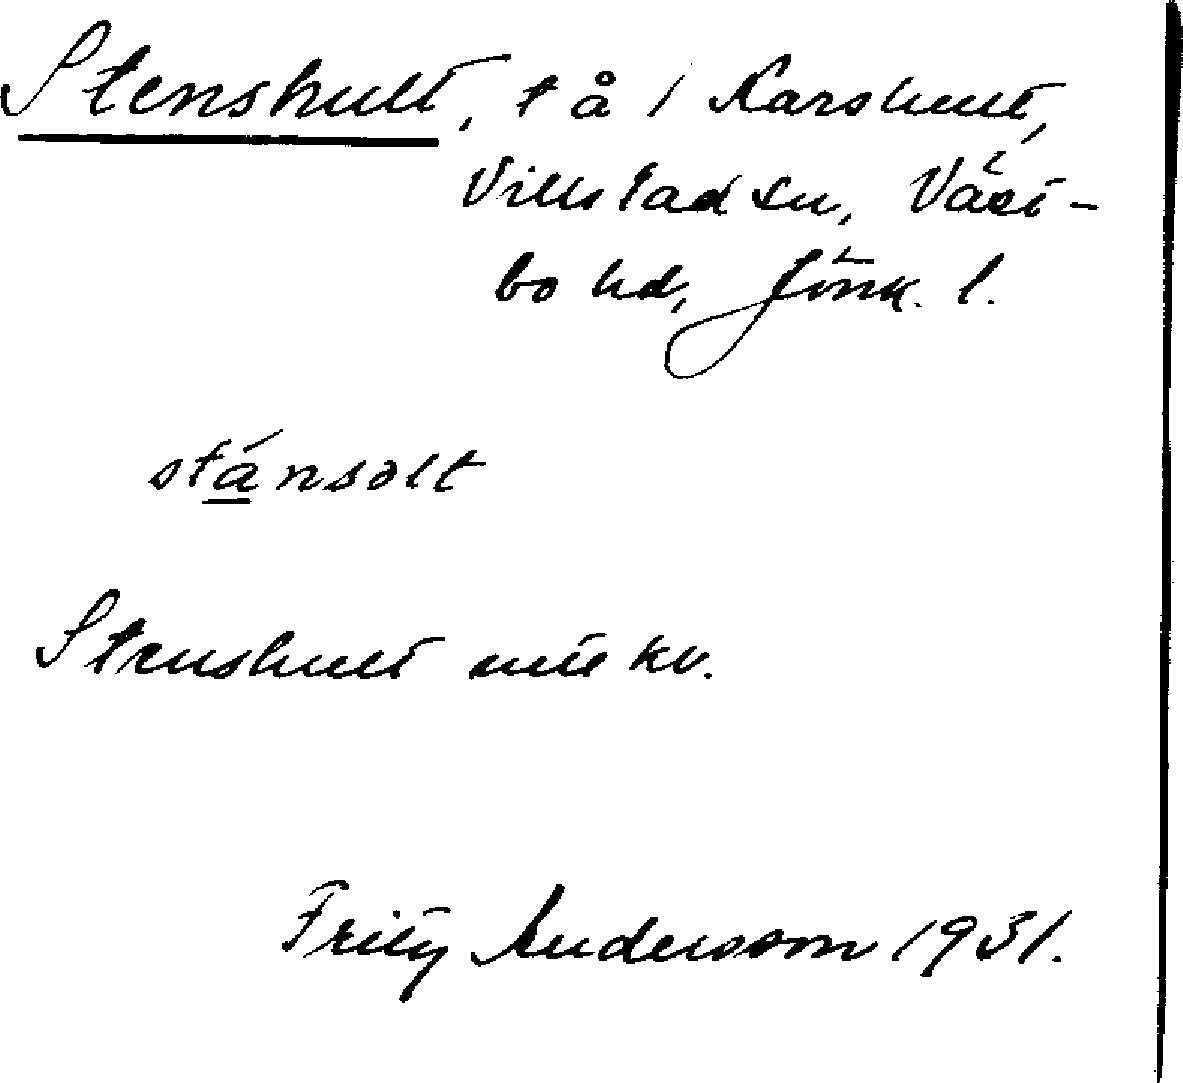 Stenshult, t å i Karshult,
Villstad sn, Väst-
bo hd, Jönk. l.
stánsȯlt
Stenshult utekv.
Fritz Andersson 1931.